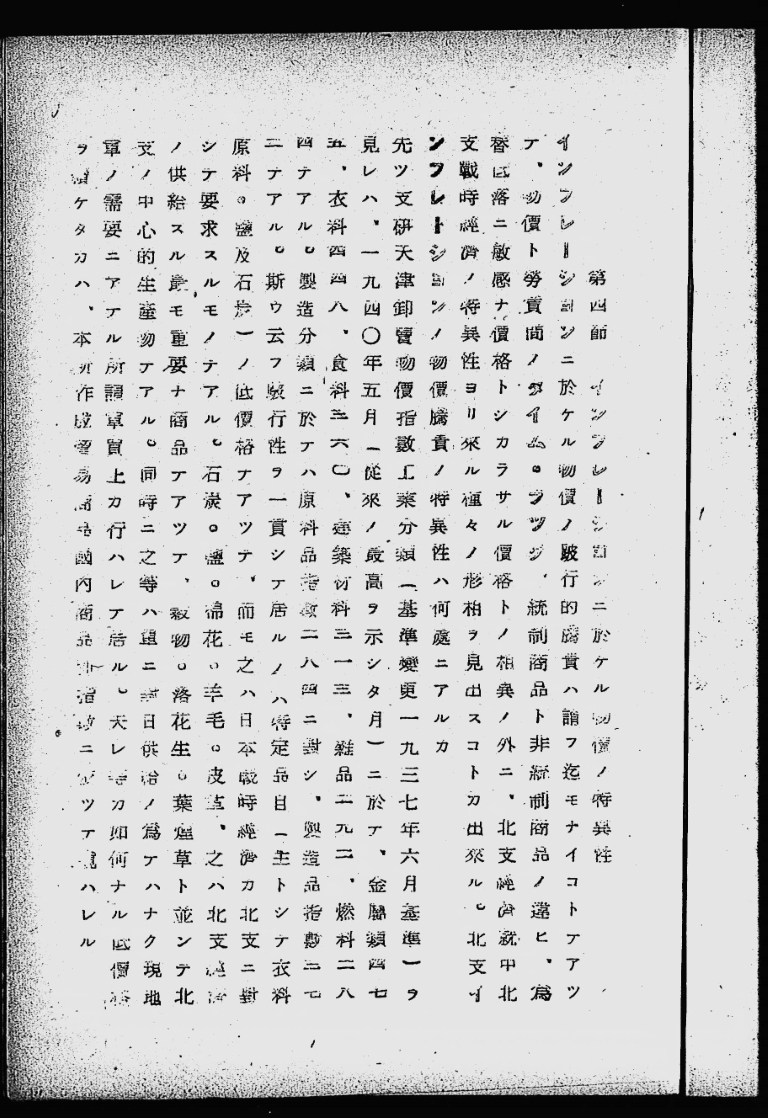 第四節　インフレーションニ於ケル物價ノ特異性
インフレーションニ於ケル物價ノ跛行的騰貴ハ謂フ迄モナイコトテアツ
テ、物價ト勞賃間ノタイム。ラツグ、統制商品ト非統制商品ノ違ヒ、爲
替低落ニ敏感ナ價格トシカラサル價格トノ相異ノ外ニ、北支經濟就中北
支戰時經濟ノ特異性ヨリ來ル種々ノ形相ヲ見出スコトカ出來ル。北支イ
ンフレーションノ物價騰貴ノ特異性ハ何處ニアルカ
先ツ支研天津卸賣物價指數工業分類（基準變更一九三七年六月基準）ヲ
見レハ、一九四〇年五月（從來ノ最高ヲ示シタ月）ニ於テ、金屬類四七
五、衣料四四八、食料三六〇、建築材料三一三、雜品二九二、燃料二八
四テアル。製造分類ニ於テハ原料品指數二八四ニ對シ、製造品指數三七
二テアル。斯ウ云フ跛行性ヲ一貫シテ居ルノハ特定品目（主トシテ衣料
原料。鹽及石炭）ノ低價格テアツテ、而モ之ハ日本戰時經濟カ北支ニ對
シテ要求スルモノテアル。石炭。鹽。棉花。羊毛。皮革、之ハ北支經濟
ノ供給スル最モ重要ナ商品テアツテ、穀物。落花生。葉煙草ト並ンテ北
支ノ中心的生産物テアル。同時ニ之等ハ單ニ對日供給ノ爲テハナク現地
軍ノ需要ニアテル所謂軍買上カ行ハレテ居ル。夫レ等カ如何ナル低價格
ヲ續ケタカハ、本研作成貿易商品國內商品別指數ニ依ツテ窺ハレル